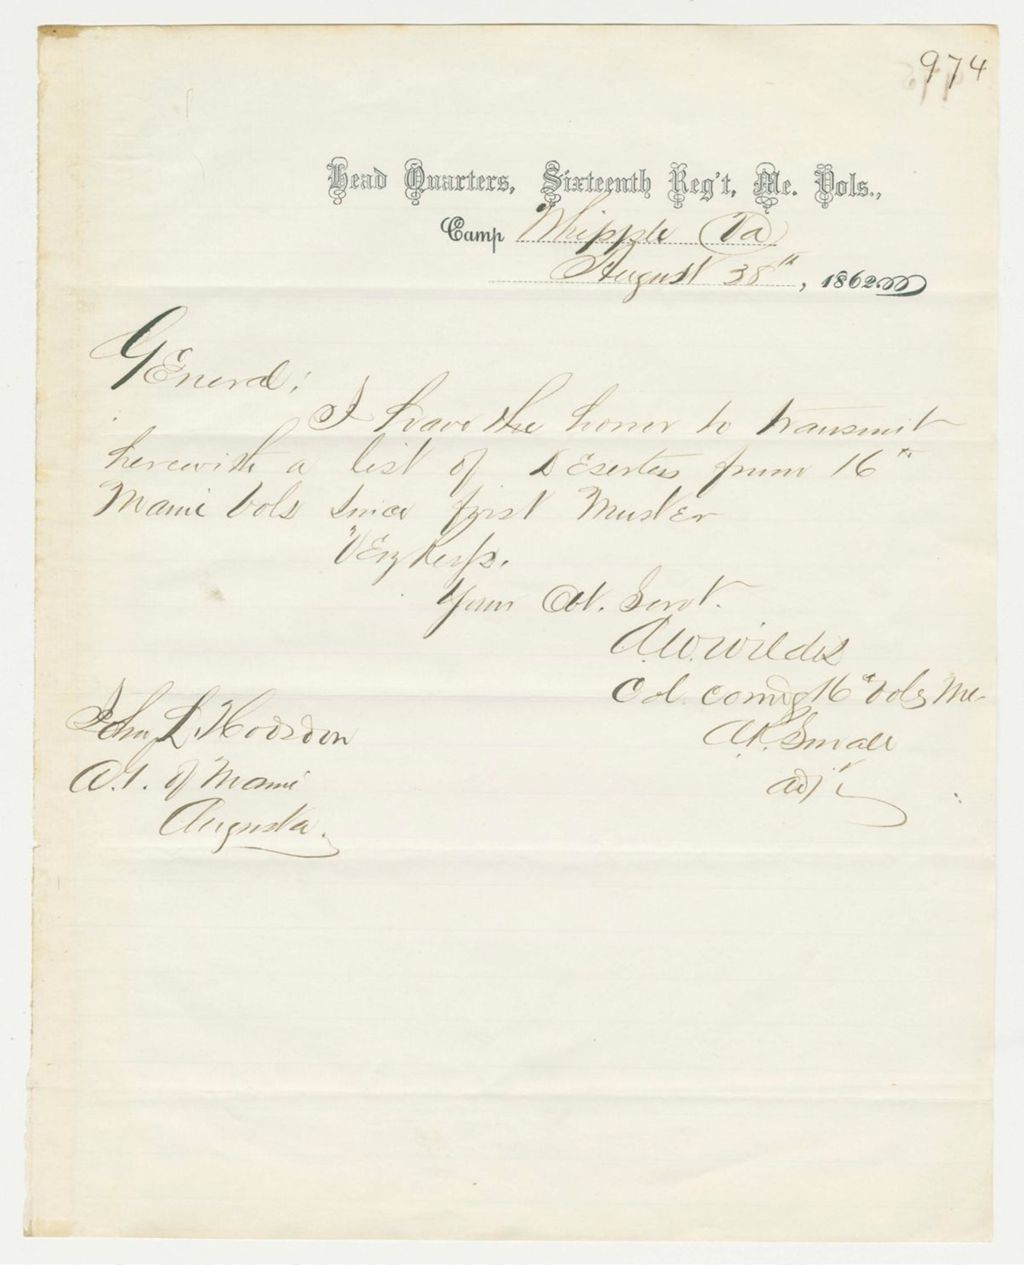 974
Head Quarters, Sixteenth Reg't, Me. Vols.,
Camp Whipple Va
August 30th, 1862
General:
I have the honor to transmit
herewith a list of Deserters from 16th
Maine Vols since first Muster
Very Resp.
Your Obt. Servt.
A.W. Wildes
Col. comdg 16th Vols Me
A.R. Small
adjt
John L. Hodsdon
A.G. of Maine
Augusta.